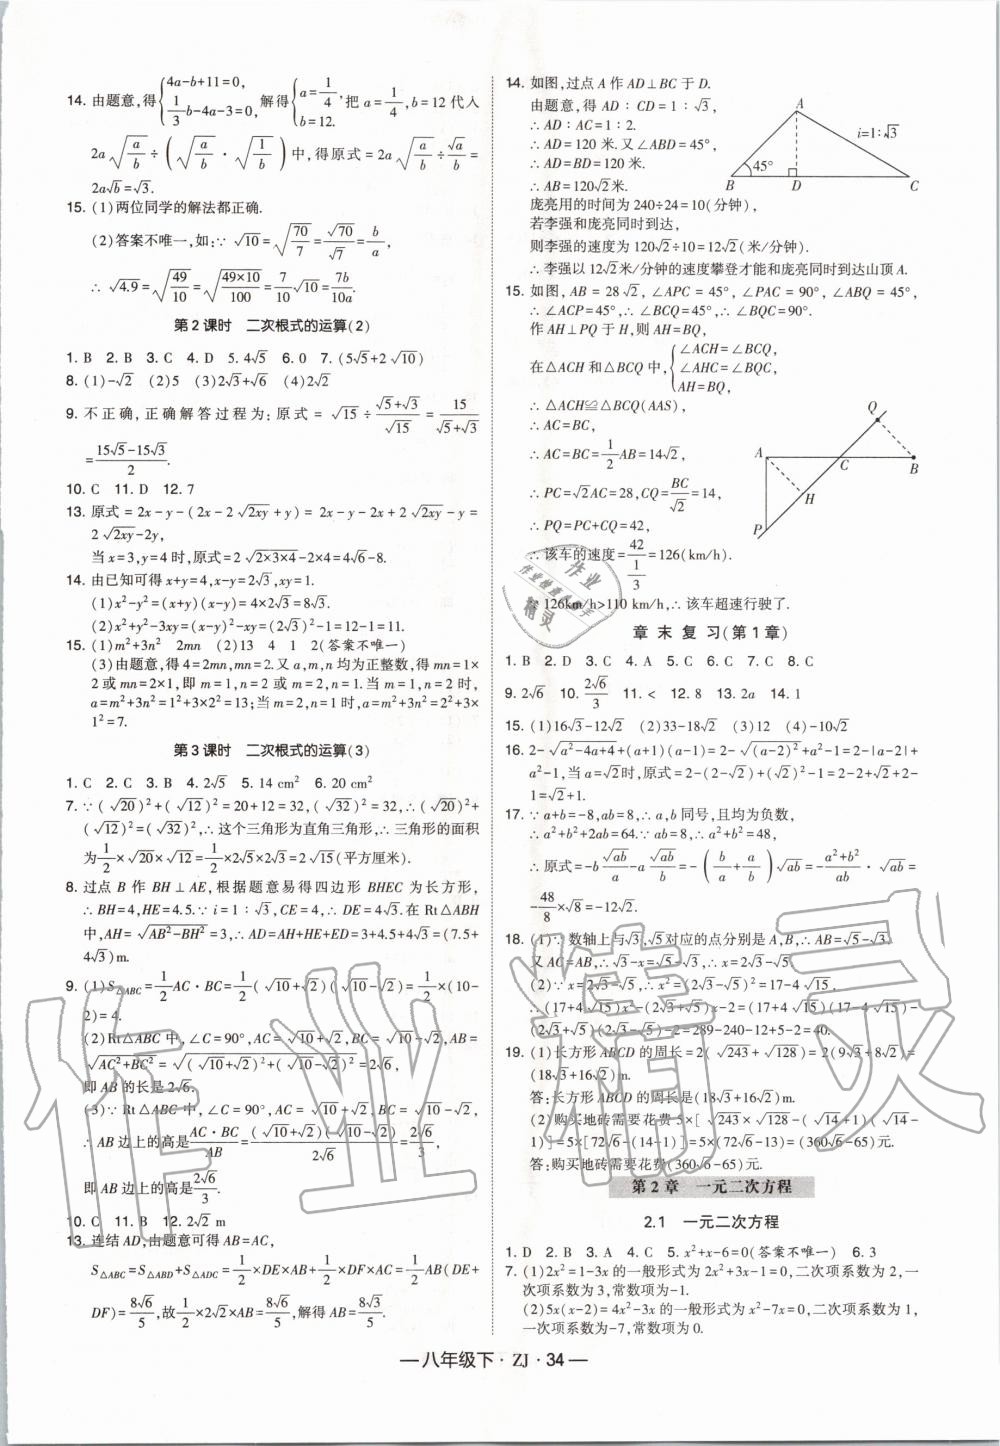 14. 由题意,得{4a-b+11=0, 1/3b-4a-3=0, 解得{a=1/4, b=12. 把 a=1/4,b=12 代入
2a√(a/b)÷(√(a/b)·√(1/b))中,得原式=2a√(a/b)÷√a/b=
2a√b=√3.
15. (1)两位同学的解法都正确.
(2)答案不唯一,如:∵√10=√(70/7)=√70/√7=b/a,
∴√4.9=√(49/10)=√(49×10/100)=7/10√10=7b/10a.
第2课时 二次根式的运算(2)
1. B 2. B 3. C 4. D 5. 4√5 6. 0 7. (5√5+2√10)
8. (1)-√2 (2)5 (3)2√3+√6 (4)2√2
9. 不正确,正确解答过程为:原式=√15÷(√5+√3)/√15=15/(√5+√3)
=(15√5-15√3)/2.
10. C 11. D 12. 7
13. 原式=2x-y-(2x-2√2xy+y)=2x-y-2x+2√2xy-y=
2√2xy-2y,
当x=3,y=4时,原式=2√2×3×4-2×4=4√6-8.
14. 由已知可得x+y=4,x-y=2√3,xy=1.
(1)x²-y²=(x+y)(x-y)=4×2√3=8√3.
(2)x²+y²-3xy=(x-y)²-xy=(2√3)²-1=12-1=11.
15. (1)m²+3n² 2mn (2)13 4 1 2(答案不唯一)
(3)由题意,得4=2mn,mn=2.又a,m,n均为正整数,得mn=1×
2或mn=2×1,即m=1,n=2或m=2,n=1.当m=1,n=2时,
a=m²+3n²=1²+3×2²=13;当m=2,n=1时,a=m²+3n²=2²+3×
1²=7.
第3课时 二次根式的运算(3)
1. C 2. C 3. B 4. 2√5 5. 14 cm² 6. 20 cm²
7. ∵(√20)²+(√12)²=20+12=32,(√32)²=32,∴(√20)²+
(√12)²=(√32)²,∴这个三角形为直角三角形,∴三角形的面积
为1/2×√20×√12=1/2×2√5×2√3=2√15(平方厘米).
8. 过点B作BH⊥AE,根据题意易得四边形BHEC为长方形,
∴BH=4,HE=4.5.∵i=1∶√3,CE=4,∴DE=4√3.在Rt△ABH
中,AH=√(AB²-BH²)=3,∴AD=AH+HE+ED=3+4.5+4√3=(7.5+
4√3)m.
9. (1)S△ABC=1/2AC·BC=1/2(√10+√2)(√10-√2)=1/2×(10-
2)=4.
(2)Rt△ABC中,∠C=90°,AC=√10+√2,BC=√10-√2,AB=
√(AC²+BC²)=√((√10+√2)²+(√10-√2)²)=2√6,
即AB的长是2√6.
(3)∵Rt△ABC中,∠C=90°,AC=√10+√2,BC=√10-√2,
∴AB边上的高是AC·BC/AB=(√10+√2)(√10-√2)/2√6=2√6/3,
即AB边上的高是2√6/3.
10. C 11. B 12. 2√2 m
13. 连结AD,由题意可得AB=AC,
S△ABC=S△ABD+S△ADC=1/2×DE×AB+1/2×DF×AC=1/2AB(DE+
DF)=8√6/5,故1/2×2√2×AB=8√6/5,解得AB=8√3/5.
14. 如图,过点A作AD⊥BC于D.
由题意,得AD∶CD=1∶√3,
∴AD∶AC=1∶2.
∴AD=120米.又∠ABD=45°,
∴AD=BD=120米.
∴AB=120√2米.
A
i=1∶√3
45°
B D C
庞亮用的时间为240÷24=10(分钟),
若李强和庞亮同时到达,
则李强的速度为120√2÷10=12√2(米/分钟).
∴李强以12√2米/分钟的速度攀登才能和庞亮同时到达山顶A.
15. 如图,AB=28√2,∠APC=45°,∠PAC=90°,∠ABQ=45°,
∴∠ACP=45°,∴∠BCQ=45°,∴∠BQC=90°.
作AH⊥PQ于H,则AH=BQ,
在△ACH和△BCQ中,{∠ACH=∠BCQ, ∠AHC=∠BQC, AH=BQ,
∴△ACH≌△BCQ(AAS),
∴AC=BC,
∴AC=BC=1/2AB=14√2,
∴PC=√2AC=28,CQ=BC/√2=14,
∴PQ=PC+CQ=42,
∴该车的速度=42/(1/3)=126(km/h).
∵126km/h>110 km/h,∴该车超速行驶了.
Q
A C B
H
P
章末复习(第1章)
1. B 2. D 3. C 4. A 5. C 6. B 7. C 8. C
9. 2√6 10. 2√6/3 11. < 12. 8 13. 2a 14. 1
15. (1)16√3-12√2 (2)33-18√2 (3)12 (4)-10√2
16. 2-√(a²-4a+4)+(a+1)(a-1)=2-√((a-2)²)+a²-1=2-|a-2|+
a²-1,当a=√2时,原式=2-(2-√2)+(√2)²-1=2-2+√2+2-
1=√2+1.
17. ∵a+b=-8,ab=8,∴a,b同号,且均为负数,
∴a²+b²+2ab=64.∵ab=8,∴a²+b²=48,
∴原式=-b√ab/a-a√ab/b=-(b/a+a/b)√ab=-(a²+b²)/ab·√ab=
-48/8×√8=-12√2.
18. (1)∵数轴上与√3,√5对应的点分别是A,B,∴AB=√5-√3.
又AC=AB,∴√3-x=√5-√3,∴x=2√3-√5.
(2)∵x=2√3-√5,∴x²=(2√3-√5)²=17-4√15.
∴(17+4√15)x²-(2√3+√5)x-2=(17+4√15)(17-4√15)-
(2√3+√5)(2√3-√5)-2=289-240-12+5-2=40.
19. (1)长方形ABCD的周长=2(√243+√128)=2(9√3+8√2)=
(18√3+16√2)m.
答:长方形ABCD的周长是(18√3+16√2)m.
(2)购买地砖需要花费5×[√243×√128-(√14+1)(√14-
1)]=5×[72√6-(14-1)]=5×(72√6-13)=(360√6-65)元.
答:购买地砖需要花费(360√6-65)元.
第2章 一元二次方程
2.1 一元二次方程
1. D 2. B 3. A 4. C 5. x²+x-6=0(答案不唯一) 6. 3
7. (1)2x²=1-3x的一般形式为2x²+3x-1=0,二次项系数为2,一
次项系数为3,常数项为-1.
(2)5x(x-2)=4x²-3x的一般形式为x²-7x=0,二次项系数为1,
一次项系数为-7,常数项为0.
—八年级下·ZJ·34—
作业精灵